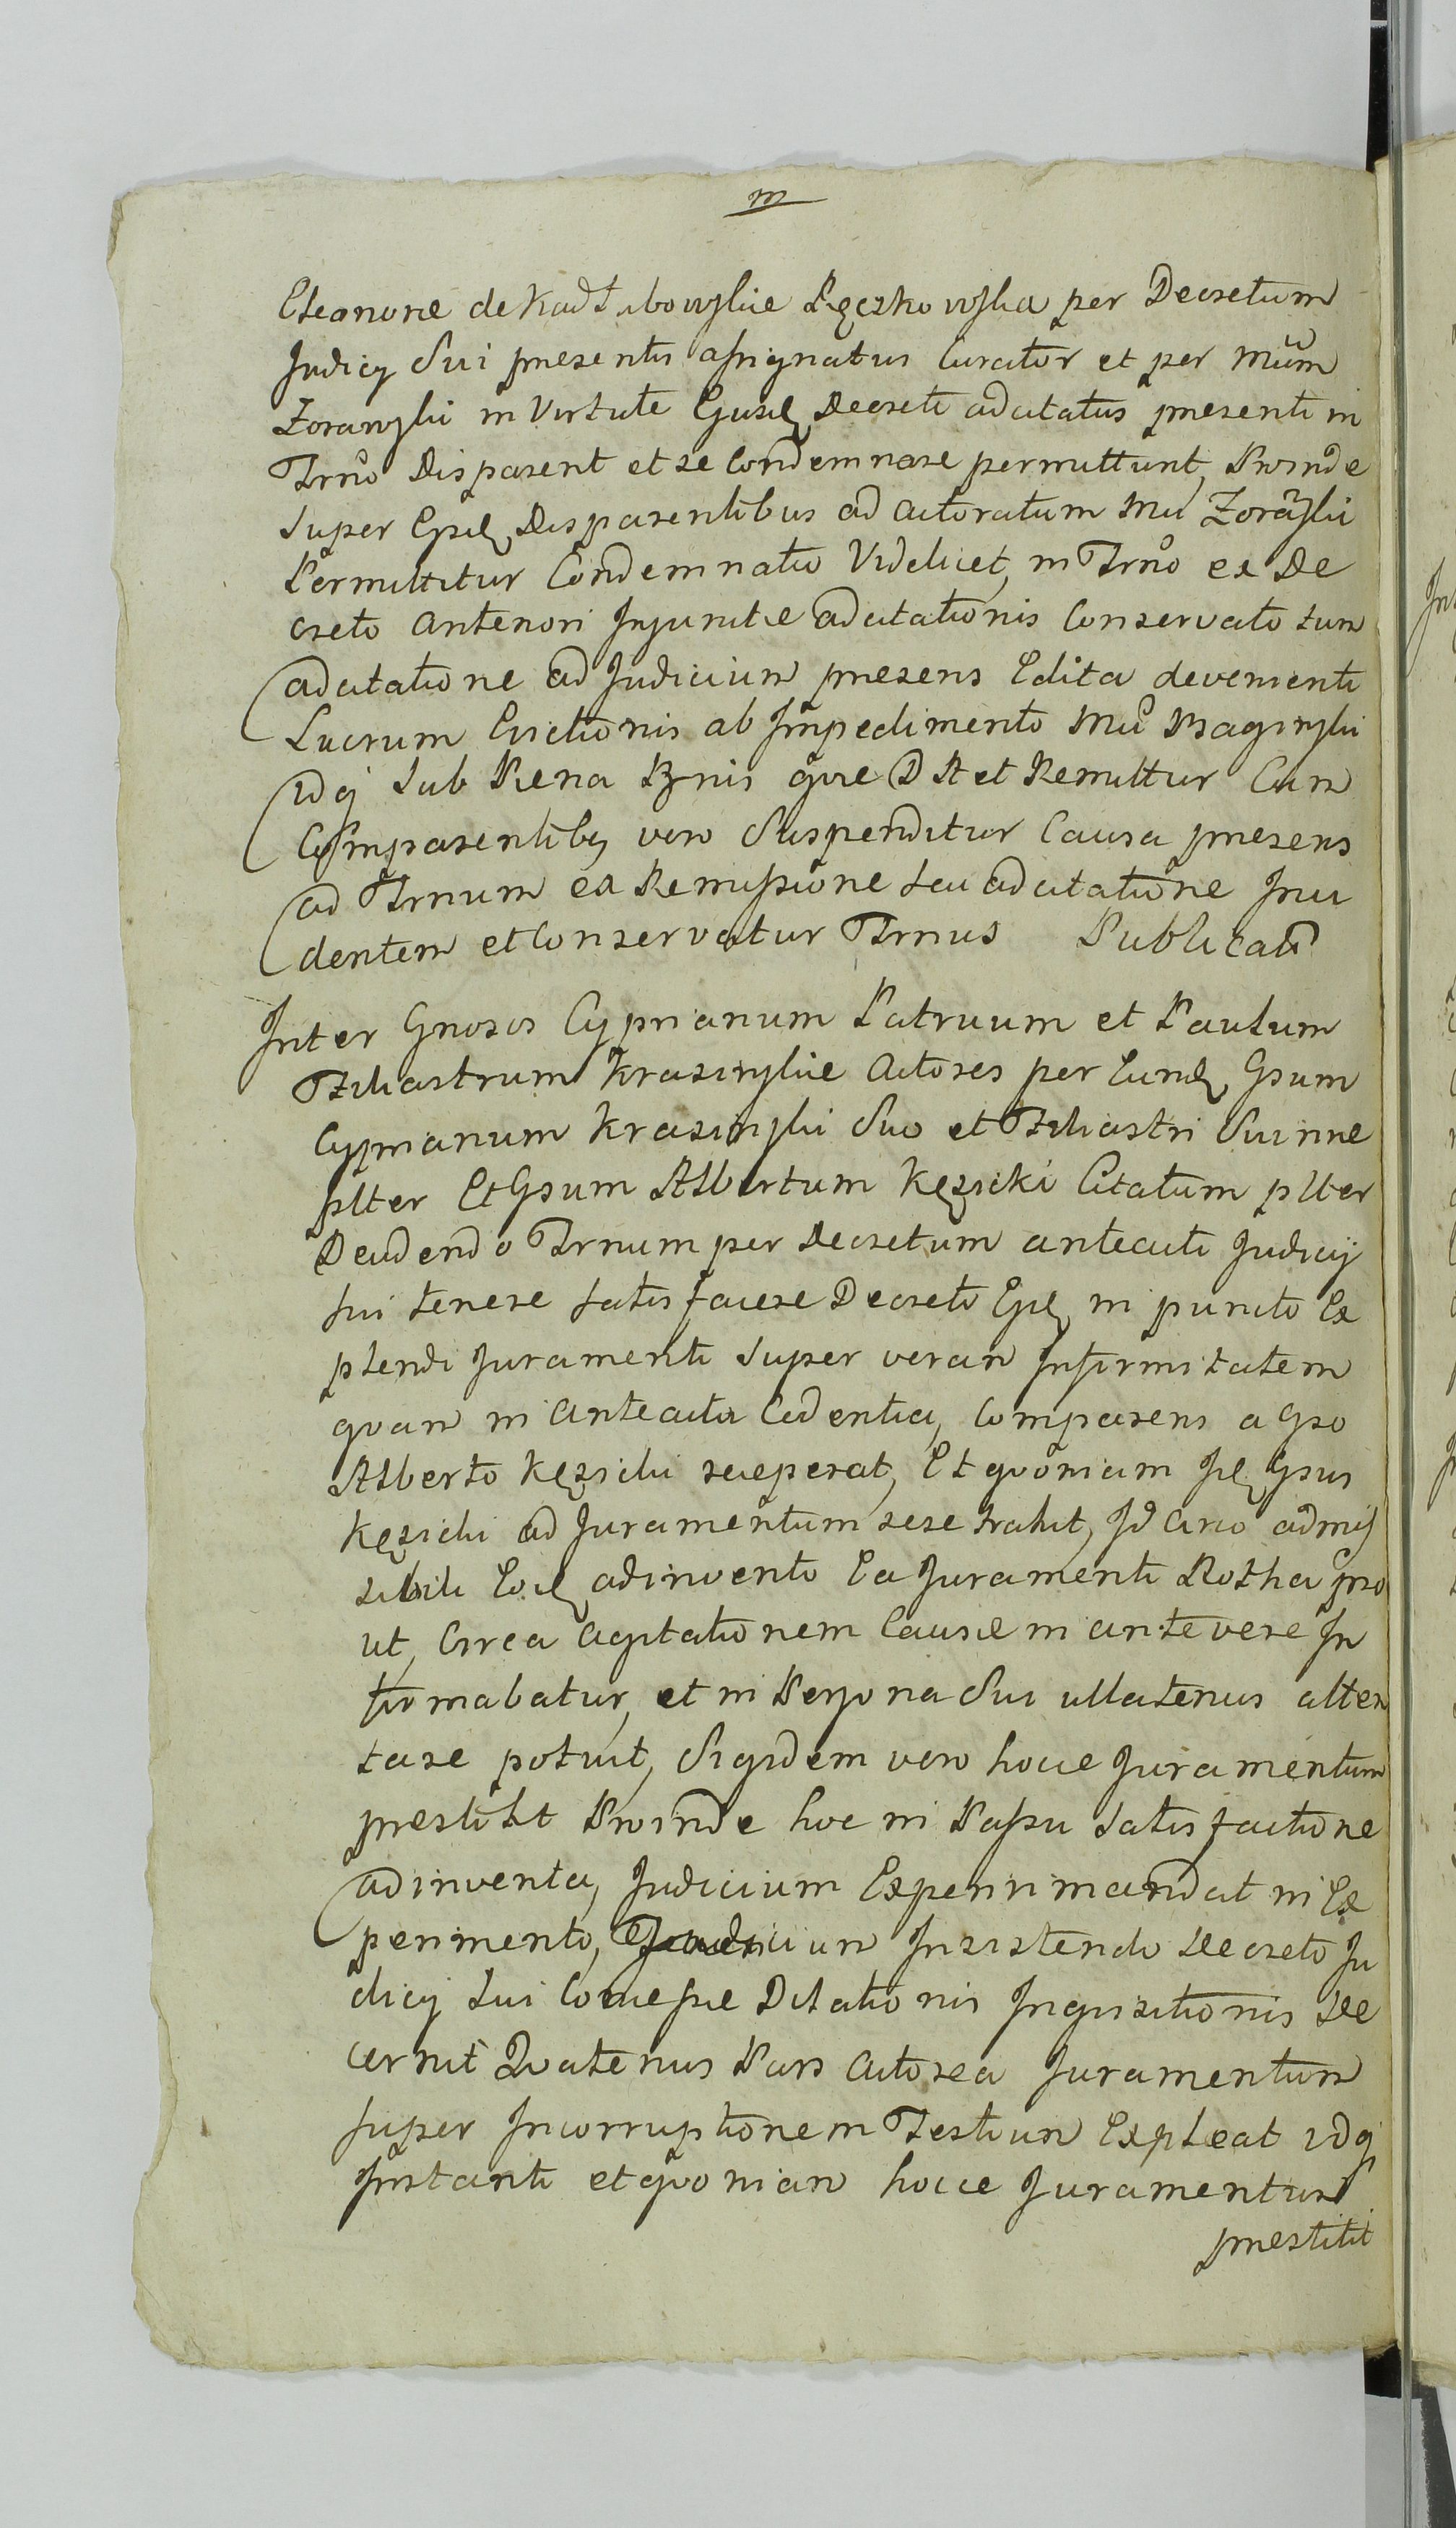 m
Eleanoræ de Kadłubowskie Ręczkowska per Decretum
Judicij Sui præsentis assignatus Curator et per Mũm
Zorawski in Virtute Ejusd Decreti adcitatus præsenti in
Trno Disparent et se Condemnare permittunt, Proinde
Super Eisd Disparentibus ad actoratum Mci Zorawski
Permittitur Condemnatio Videlicet, in Trno ex De
creto Anteriori Injunctæ adcitationis Conservato tum
adcitatione ad Judicium præsens Edita devenienti
Lucrum Evictionis ab Impedimento Mci
idq Sub Pæna Bnis quæ D st et Remittitur Cum
Comparentibq vero Suspenditur Causa præsens
ad Trnum ex Remissione seu adcitatione Inci
dentem et Conservatur Trnus Publicati
Inter Gnosos Cyprianum Patruum et Paulum
Filiastrum Krasinskie Actores per Eund Gsum
Cyprianum Krasinski Suo et Filiastri Sui nne
plter Et Gsum Albertum Kęsicki Citatum plter
Deudendo Trnum per Decretum anteacti Judicij
sui tenere satisfacere Decreto Ejsd in puncto Ex
plendi Juramenti Super veram Infirmitatem
quam in Anteacta Cadentia, Comparens a Gso
Alberto Kęsicki receperat, Et quoniam Isd Gsus
Kęsicki ad Juramentum sese trahit, Id Circo admis
sibili Eod adinvento Ea Juramenti Rotha pro
ut, Circa Agitationem Causæ in antevere In
firmabatur, et in Persona Sui ullatenus atten
tare potuit, Siquidem vero hocce Juramentum
præstitit Proinde hoc in Passu Satisfactione
adinventa, Judicium Experiri mandat in Ex
perimento, Judicium Insistendo Decreto Ju
dicij Sui Concessæ Dilationis Inquisitionis De
cernit Quatenus Pars Actorea Juramentum
super Incorruptionem Testium Expleat idq
Instanti et quoniam hocce Juramentum
præstitit